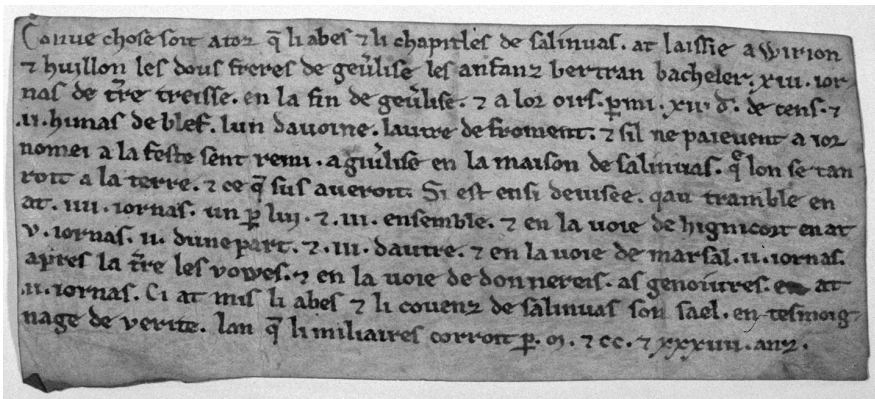 Conue chose soit a toz q̄ li abes ⁊ li chapitles de salinuas. at laissie a Wirion
⁊ huillon les dous freres de geu̾lise les anfanz bertran bacheler. xiii. ior
nas de t̄re treisse. en la fin de geu̾lise. ⁊ a lor oirs. ꝑmi. xii d̄. de cens. ⁊
.ii. himas de blef. lun dauoine. lautre de froment. ⁊ sil ne paieuent a ior
nomei a la feste sent remi. a giu̾lise en la maison de salinuas. q̄ lon se tan
roit a la terre. ⁊ ce q̄ sus aueroit. Si est ensi deuisee. qau tramble en
at. iiii. iornas. un ꝑ lui. ⁊. iii. ensemble. ⁊ en la uoie de hignicort en at
v. iornas. ii. dune part. ⁊. iii. dautre. ⁊ en la uoie de marsal. ii. iornas.
apres la t̄re les vowes. ⁊ en la uoie de donnereis. as genoiures. en at
.ii. iornas. Ci at mis li abes ⁊ li couenz de salinuas son sael. en tesmoig
nage de verite. lan q̄ li miliaires corroit ꝑ. m. ⁊ cc. ⁊ xxxiiii. anz.